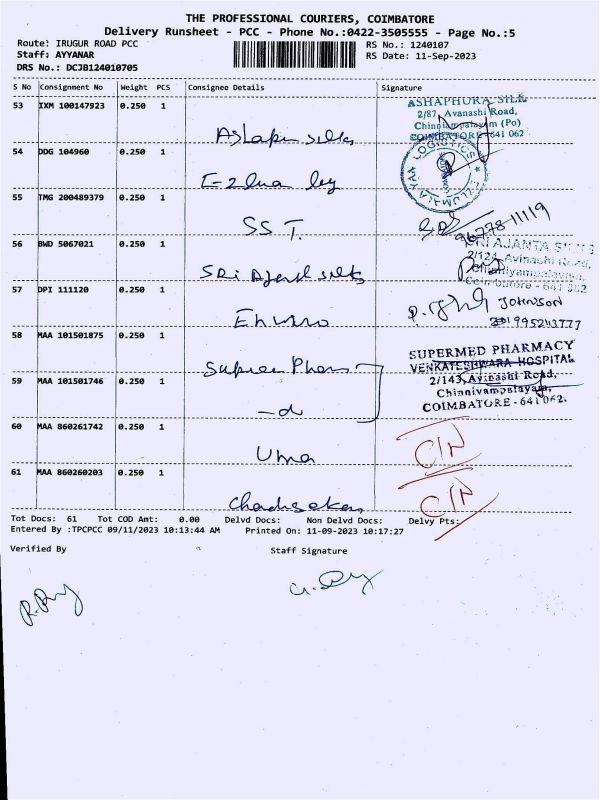 THE PROFESSIONAL COURIERS, COIMBATORE
Delivery Runsheet - PCC - Phone No.:0422-3505555 - Page No.:5
Route: IRUGUR ROAD PCC
RS No.: 1240107
Staff: AYYANAR
RS Date: 11-Sep-2023
DRS No.: DCJB124010705
S No Consignment No Weight PCS Consignee Details Signature
53 IXM 100147923 0.250 1
ASHAPHURA SILK
2/87, Avanashi Road,
Chinniampalayam (Po)
COIMBATORE - 641 062
54 DDG 104960 0.250 1
EZLUMALAYAN LOGISTICS
55 TMG 200489379 0.250 1
SS T.
96778-11119
56 BWD 5067021 0.250 1
SRi Ajanta silks
SRI AJANTA SILKS
2/124, Avinashi Road,
Chinniyampalayam,
Coimbatore - 641 062
57 DPI 111120 0.250 1
Johnson
58 MAA 101501875 0.250 1
SUPERMED PHARMACY
VENKATESHWARA HOSPITAL
2/143, Avinashi Road,
Chinnivampalayam,
COIMBATORE - 641062.
59 MAA 101501746 0.250 1
60 MAA 860261742 0.250 1
Uma
C/N
61 MAA 860260203 0.250 1
C/N
Tot Docs: 61 Tot COD Amt: 0.00 Delvd Docs: Non Delvd Docs: Delvy Pts:
Entered By :TPCPCC 09/11/2023 10:13:44 AM Printed On: 11-09-2023 10:17:27
Verified By Staff Signature